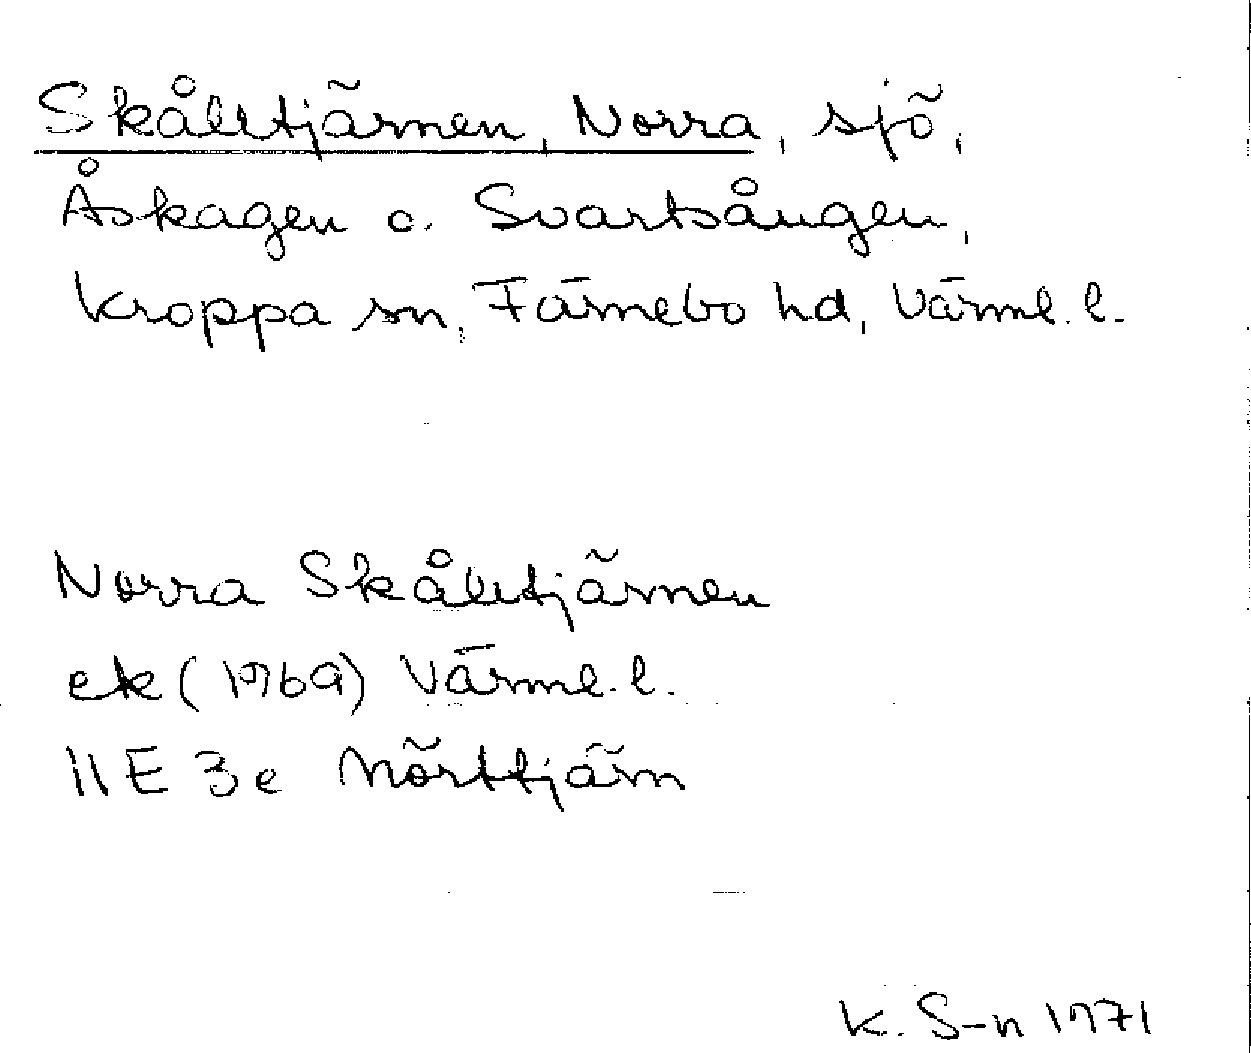 Skålltjärnen, Norra, sjö,
Åskagen o. Svartsången,
Kroppa sn, Färnebo hd, Värml. l.
Norra Skålltjärnen
ek (1969) Värml. l.
11E 3e Mörttjärn
K. S-n 1971